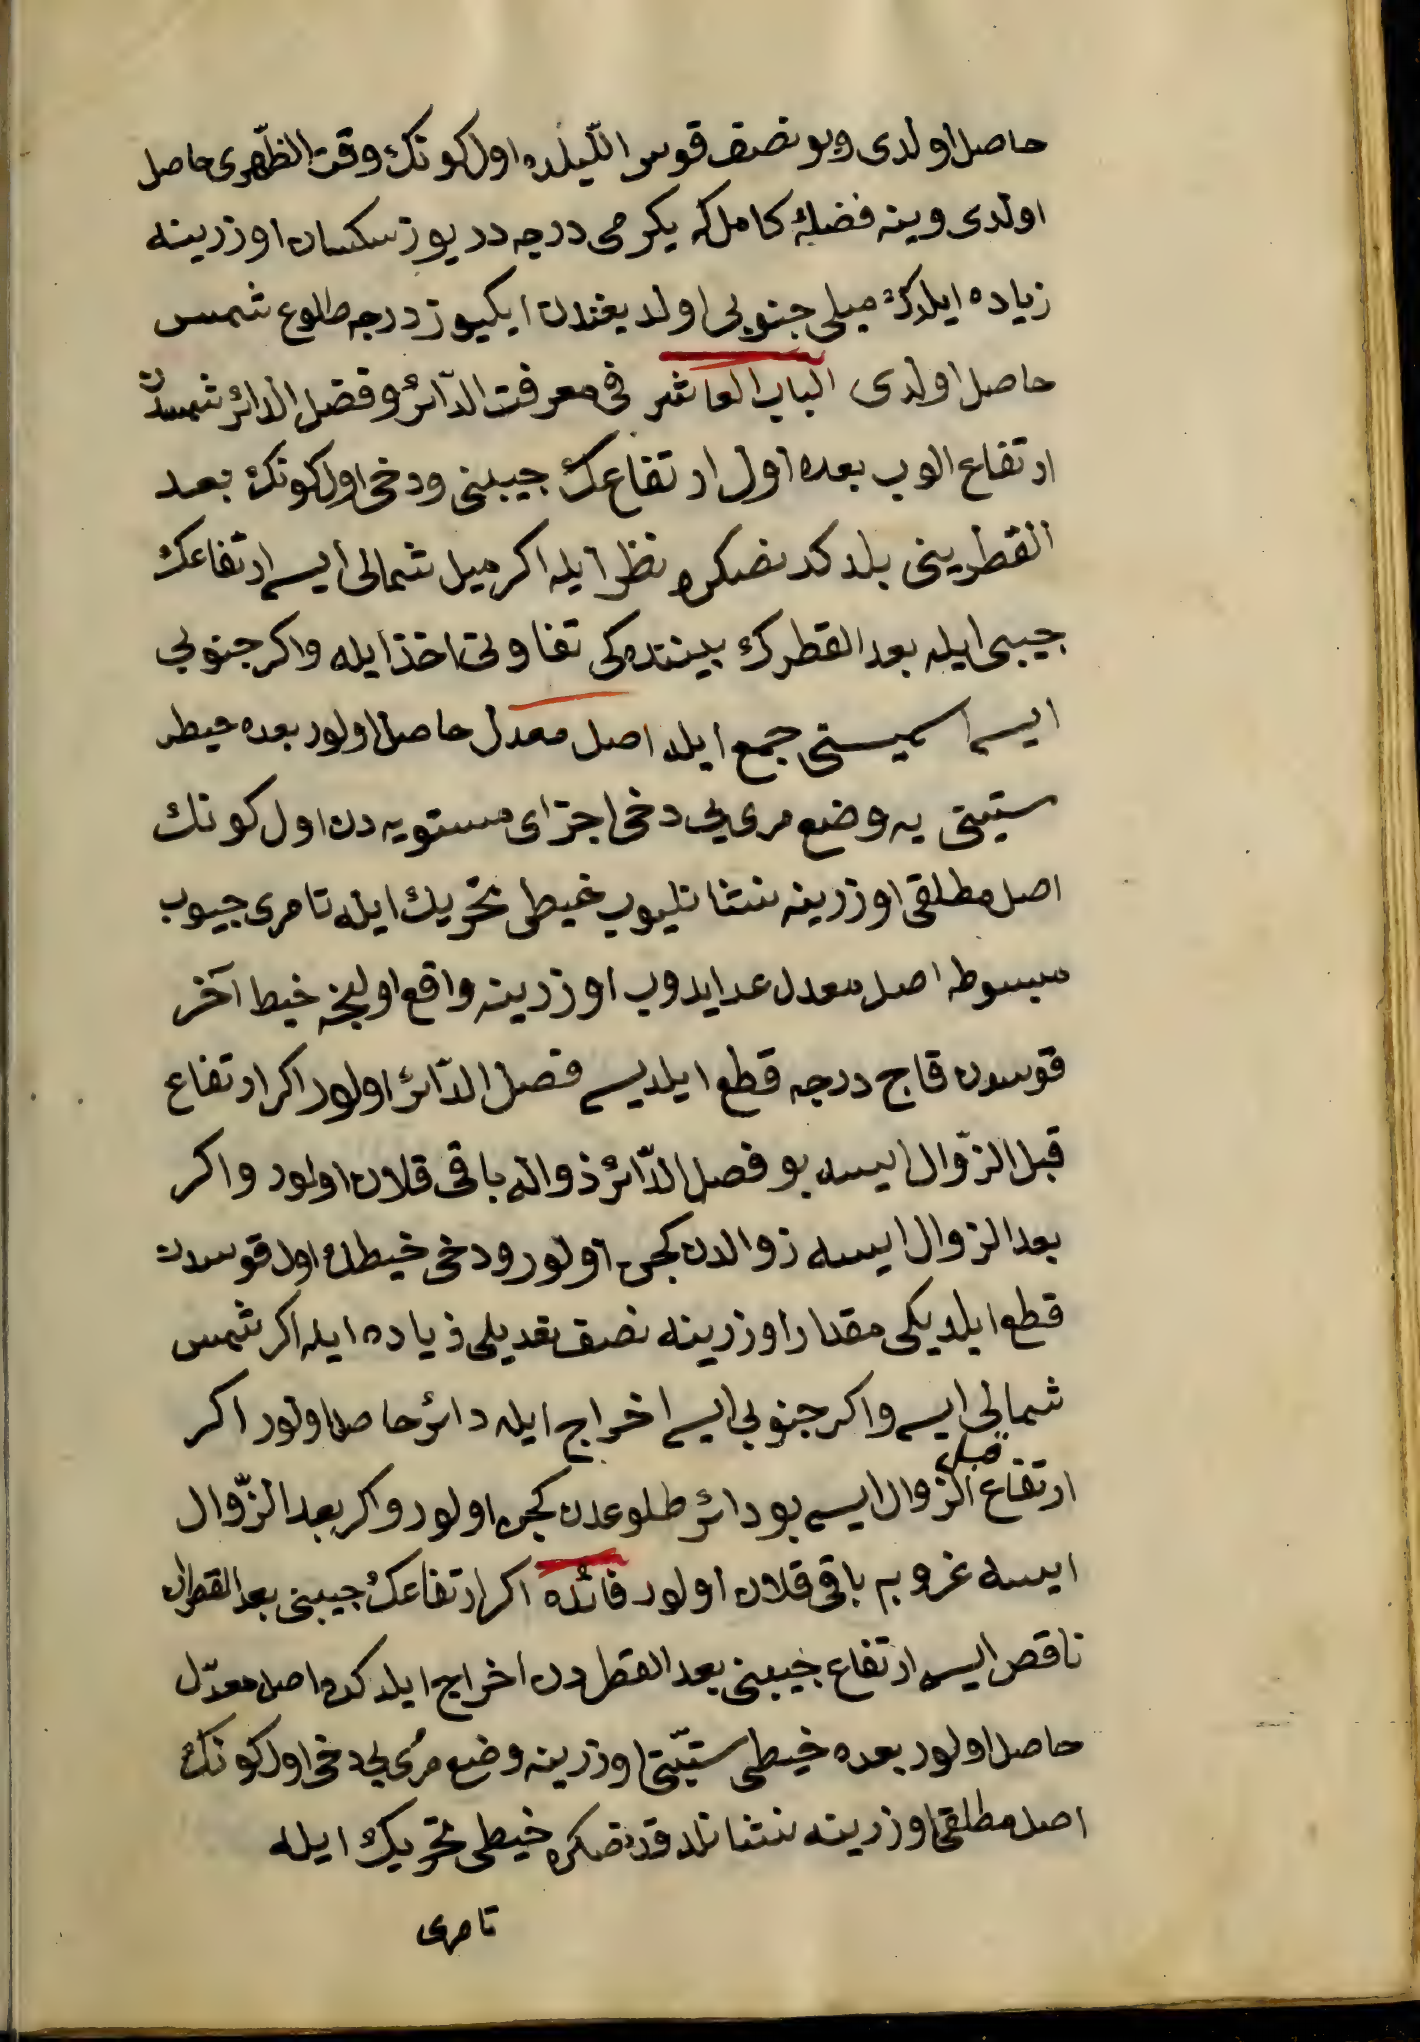 حاصل اولدى وبو نصف قوس اللّيلده اول كونك وقت الظّهرى حاصل
اولدى وينه فضلۀ كامل كه يكرمى درجه در يوز سكسان اوزرينه
زياده ايلدك ميلى جنوبى اولديغندن ايكيوز درجه طلوع شمس
حاصل اولدى الباب العاشر فى معرفت الدّائر وفضل الدائر شمسدن
ارتفاع الوب بعده اول ارتفاعك جيبنى ودخى اول كونك بعد
القطرينى بلدكدنصكره نظر ايله اكر ميل شمالى ايسه ارتفاعك
جيبى ايله بعد القطرك بيننده كى تفاوتى اخذ ايله واكر جنوبى
ايسه ايكيسنى جمع ايله اصل معدل حاصل اولور بعده خيطى
ستينى يه وضع مرى يى دخى اجزاى مستويه دن اول كونك
اصل مطلقى اوزرينه نشانليوب خيطى تحريك ايله تا مرى جيوب
مبسوطه اصل معدل عد ايدوب اوزرينه واقع اولنجه خيط آخر
قوسدن قاچ درجه قطع ايلديسه فضل الدّائر اولور اكر ارتفاع
قبل الزّوال ايسه بو فضل الدّائر ذواله باقى قلان اولور واكر
بعد الزوال ايسه زوالدن كچن اولور ودخى خيطك اول قوسدن
قطع ايلديكى مقدار اوزرينه نصف تعديلى ذياده ايله اكر شمس
شمالى ايسه واكر جنوبى ايسه اخراج ايله دائر حاصل اولور اكر
ارتفاع قبل الزّوال ايسه بو دائر طلوعدن كچن اولور واكر بعد الزّوال
ايسه غروبه باقى قلان اولور فائده اكر ارتفاعك جيبنى بعد القطردن
ناقص ايسه ارتفاع جيبنى بعد القطردن اخراج ايلدكده اصل معدّل
حاصل اولور بعده خيطى ستينى اوزرينه وضع مرى يى دخى اول كونك
اصل مطلقى اوزرينه نشانلدقدنصكره خيطى تحريك ايله
تا مرى